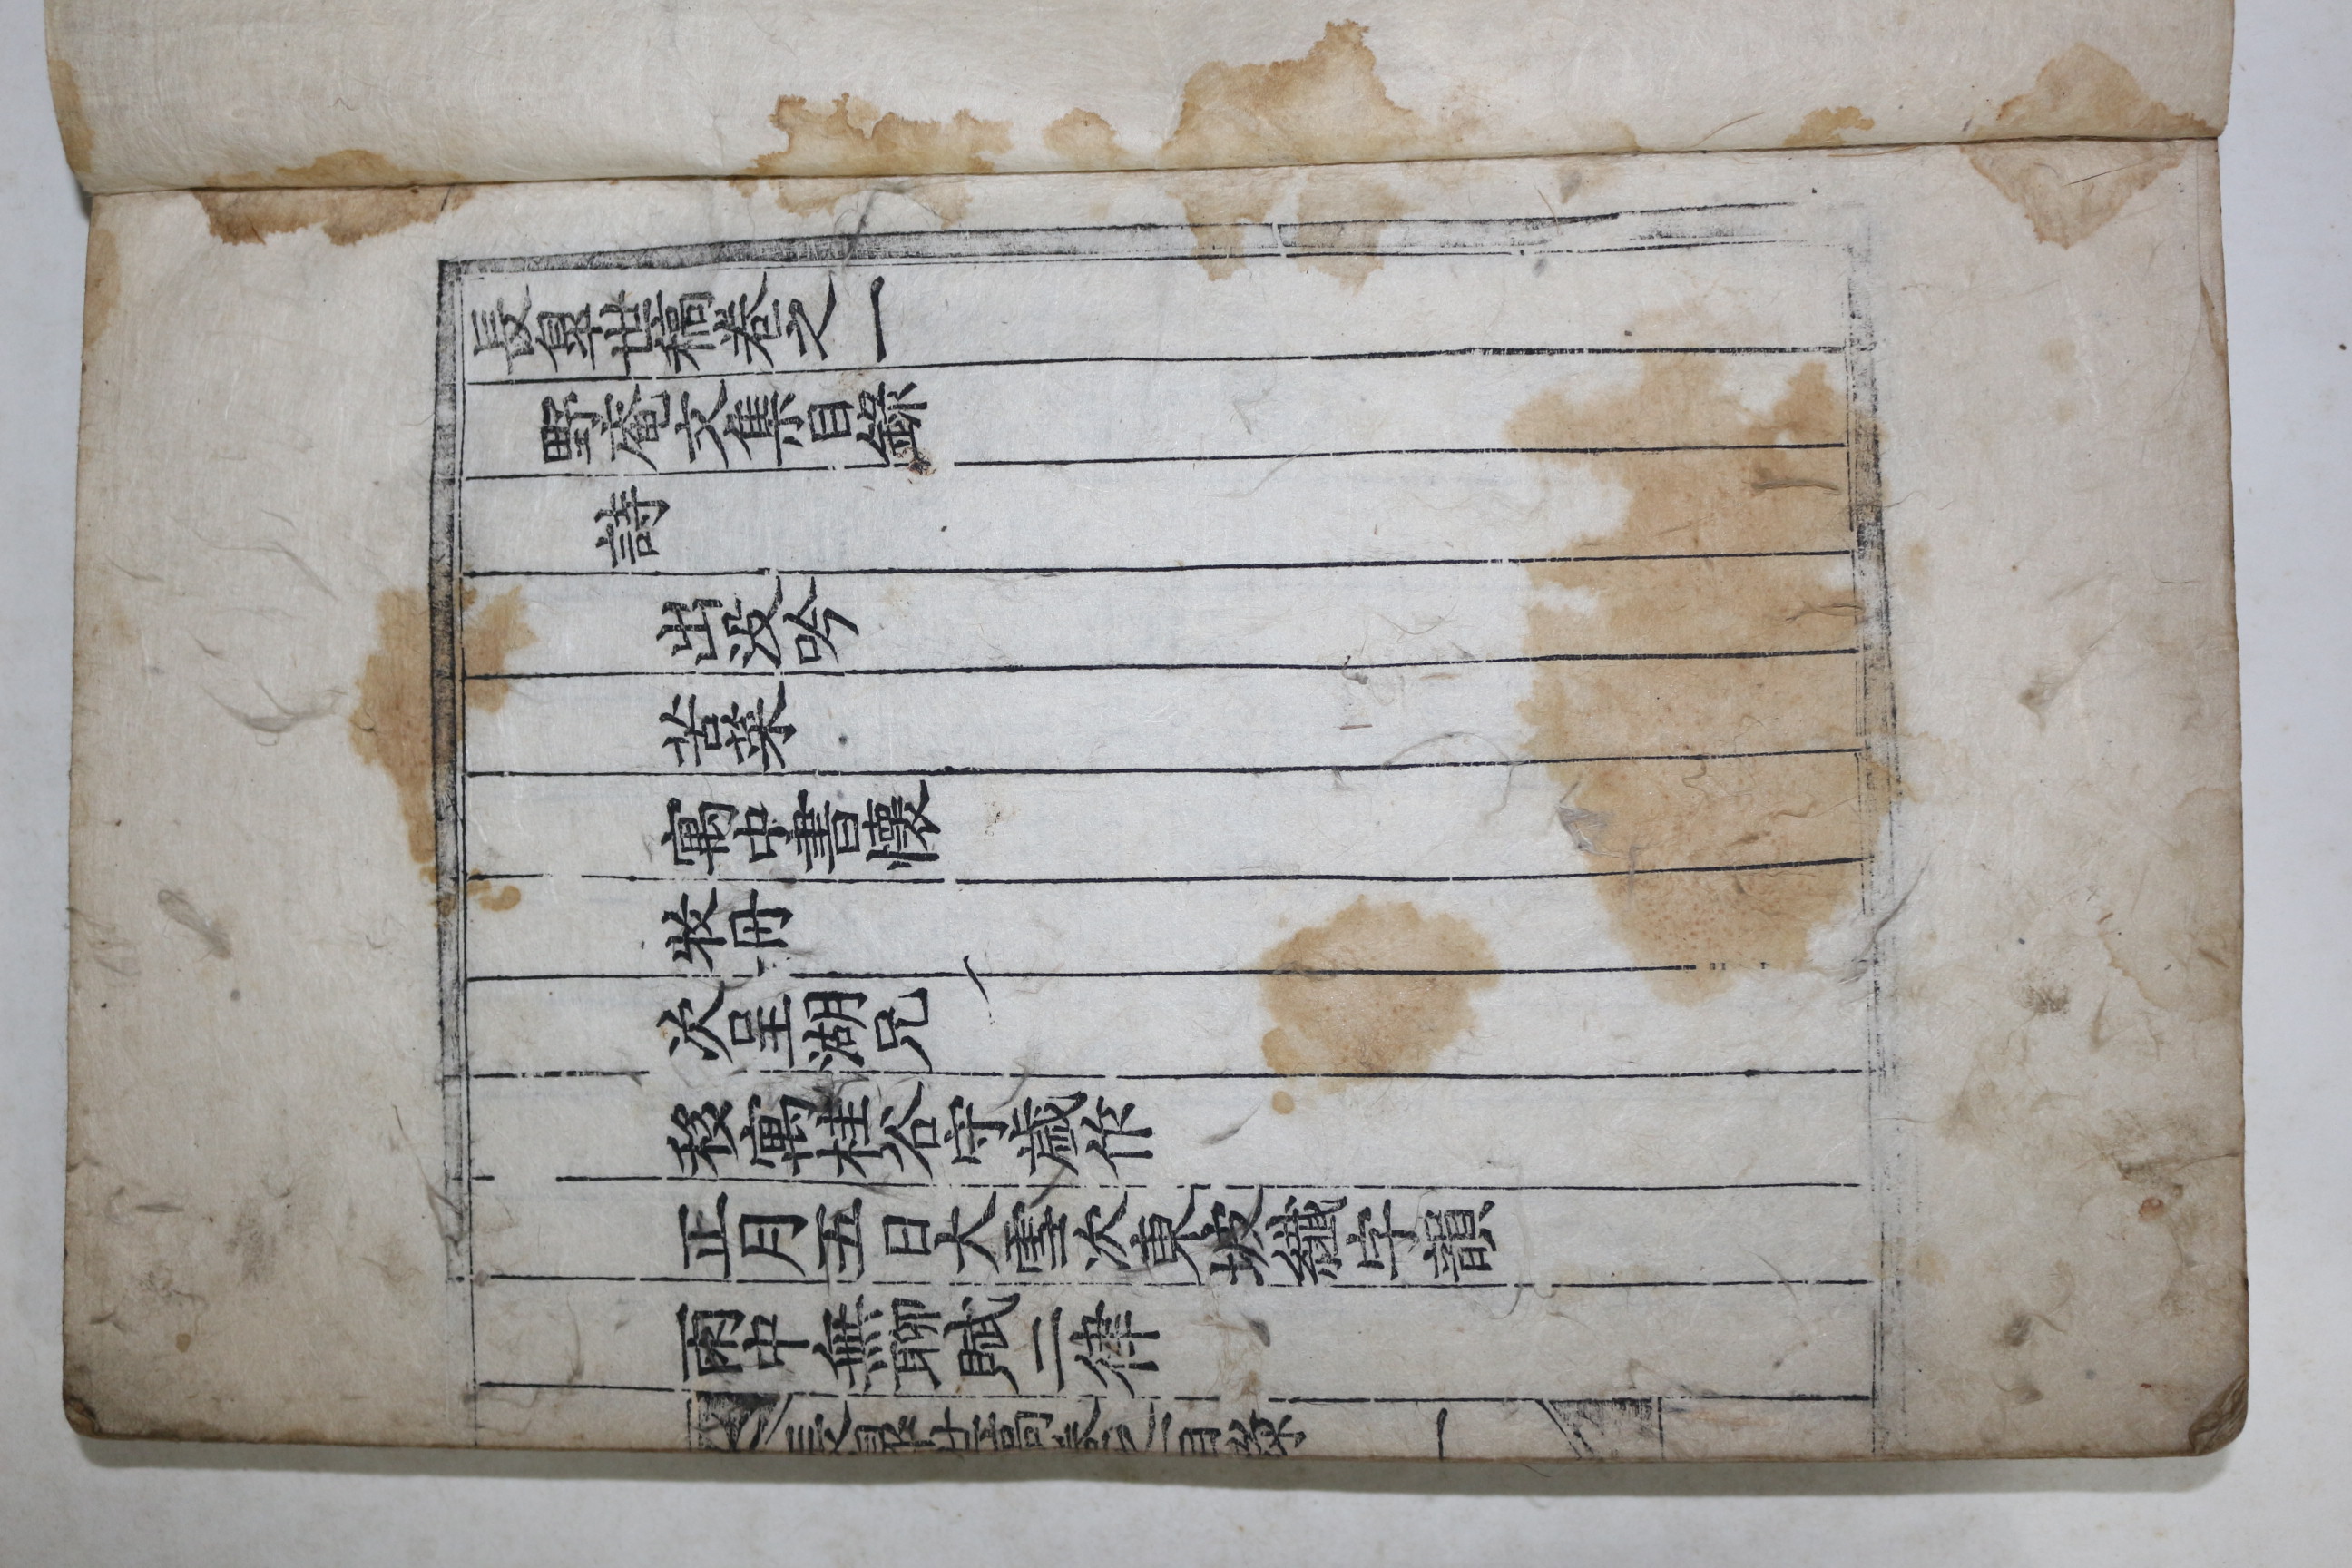 長皐世稿卷之一
野庵文集目錄
詩
出沒吟
苦菜
寓中書懷
牧丹
次呈湖兄
移寓桂谷守歲作
正月五日大雪次東坡纖字韻
雨中無聊賦二律
長皐世稿卷之一目錄 一